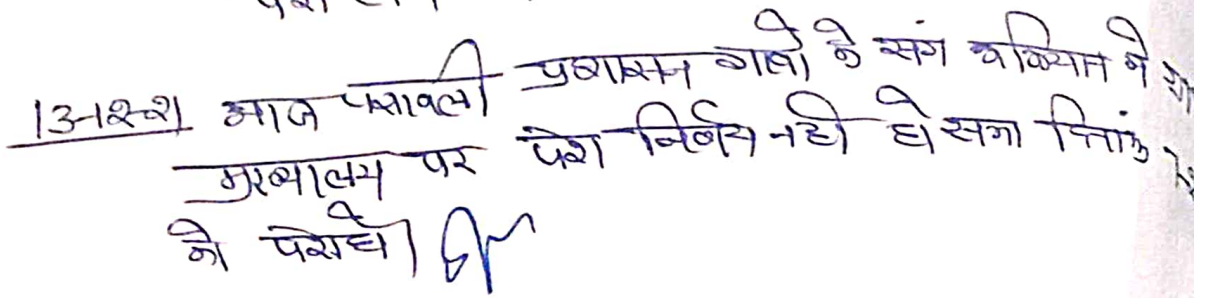 13-12-21 आज पत्रावली प्रशासन गावो के संग अभियान मे
मुख्यालय पर पेश निर्णय नही हो सका दिनांक
को पेश हो।